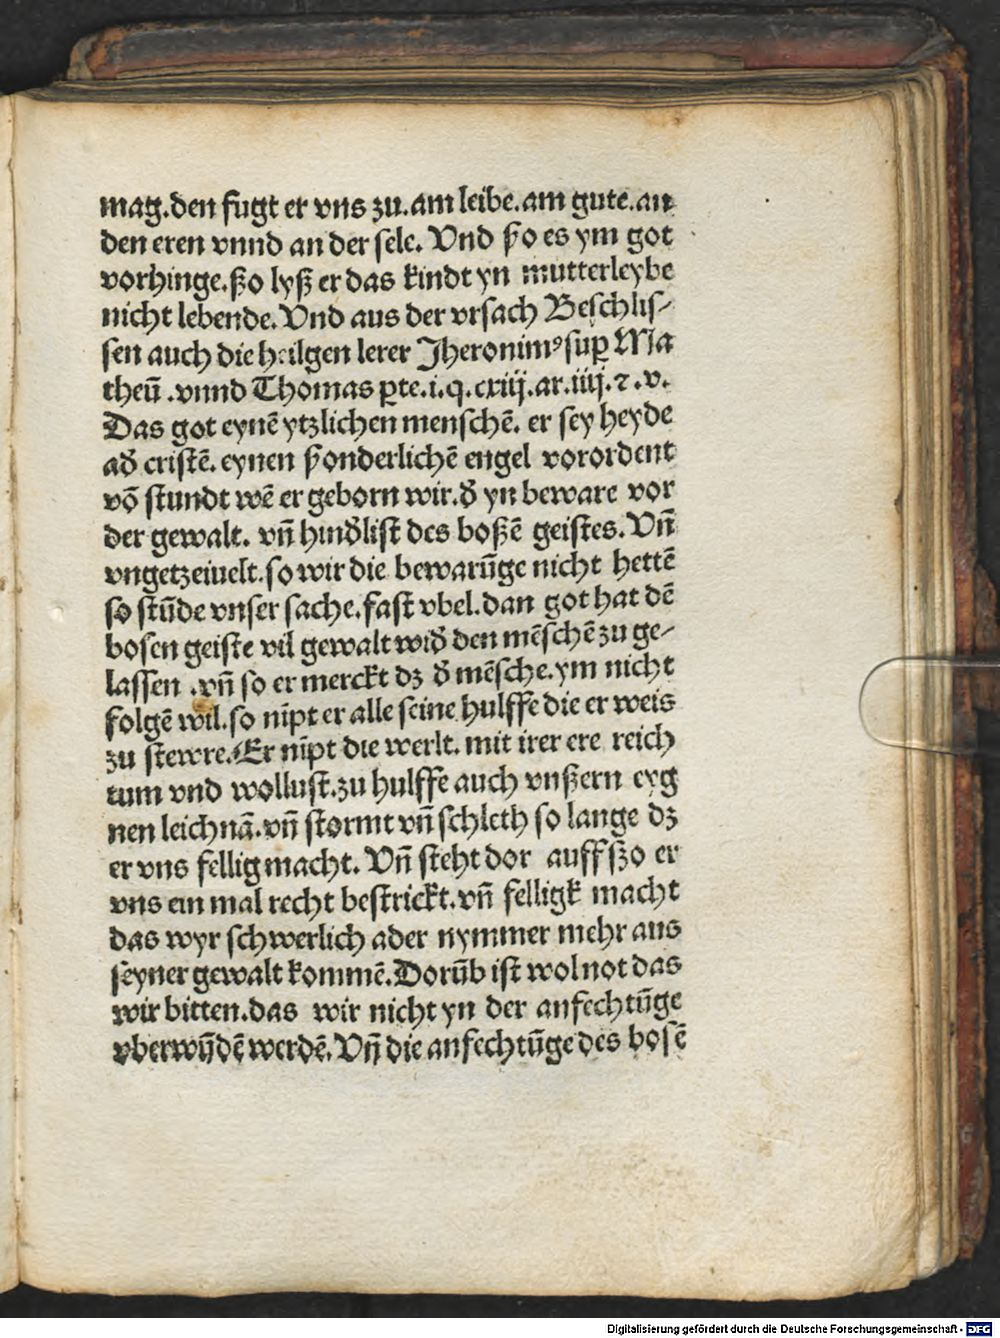 mag.den fugt er vns zu.am leibe.am gute.an
den eren vnnd an der sele. Vnd ßo es ym got
vorhinge.ßo lyß er das kindt yn mutterleybe
nicht lebende.Vnd aus der vrsach Beschlis⸗
sen auch die heilgen lerer Jheronimꝰ suꝑ Ma
theū .vnnd Thomas ꝑte.i.q.cxiij.ar.iiij.⁊.v.
Das got eynē ytzlichen menschē. er sey heyde
ađ cristē. eynen ßonderlichē engel vorordent
vō stundt wē er geborn wir.đ yn beware vor
der gewalt. vn̄ hinđlist des boßē geistes. Vn̄
vngetzeiuelt.so wir die bewarūge nicht hettē
so stūde vnser sache.fast vbel.dan got hat dē
bosen geiste vil gewalt wiđ den mēschē zu ge⸗
lassen .vn̄ so er merckt dz đ mēsche.ym nicht
folgē wil.so nīpt er alle seine hulffe die er weis
zu stewre.Er nīpt die werlt. mit irer ere reich
tum vnd wollust.zu hulffe auch vnßern eyg
nen leichnā.vn̄ stormt vn̄ schleth so lange dz
er vns fellig macht. Vn̄ steht dor auff ßo er
vns ein mal recht bestrickt.vn̄ felligk macht
das wyr schwerlich ader nymmer mehr aus
seyner gewalt kommē.Dorūb ist wol not das
wir bitten.das wir nicht yn der anfechtūge
vberwȳdē werdē.Vn̄ die anfechtūge des bosē
Digitalisierung gefördert durch die Deutsche Forschungsgemeinschaft - DFG